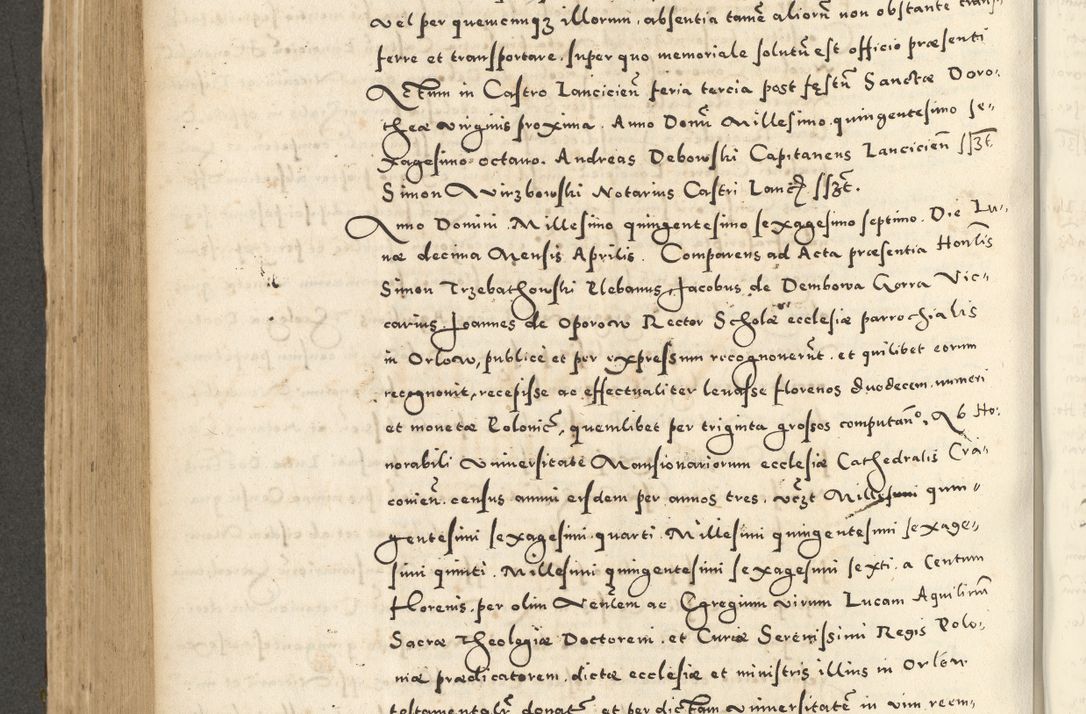 vel per quemcunqз illorum, absentia tamē aliorū non obstante trans-
ferre et transportare. super quo memoriale solutū est officio præsenti
Actum in Castro Lanciciēn feria tercia post festū Sanctæ Doro-
theæ virginis proxima. Anno Domī Millesimo quingentesimo se-
xagesimo octavo. Andreas Debowski Capitaneus Lanciciēn sszt
Simon Wirzbowski Notarius Castri Lanc. sszt.
Anno Domini Millesimo quingentesimo sexagesimo septimo. Die Lu-
næ decima Mensis Aprilis. Comparens ad Acta præsentia Honlis
Simon Trzebathowski Plebanus, Jacobus de Dembowa Gorra Vic-
carius. Joannes de Oporow Rector Scholæ ecclesiæ parrochialis
in Orlow, publice et per expressum recognoverūt. et quilibet eorum
recognovit, recepisse ac effectualiter levasse florenos duodecem numeri
et monetæ Polonic, quemlibet per triginta grossos computān°, Ab Ho-
norabili Universitate Mansionariorum ecclesiæ Cathedralis Cra-
coviēn. census annui eisdem per annos tres. vczt Millesimi quin-
gentesimi sexagesimi quarti. Millesimi quingentesimi sexage-
simi quinti. Millesimi quingentesimi sexagesimi sexti. a Centum
florenis. per olim Venlem ac Egregium virum Lucam Aquilinū
Sacræ Theologiæ Doctorem. et Curæ Serenissimi Regis Polo-
niæ prædicatorem. dictæ ecclesiæ et ministris illius in Orlow
testamentalr donat et per dictam Universitatē in vim reem-